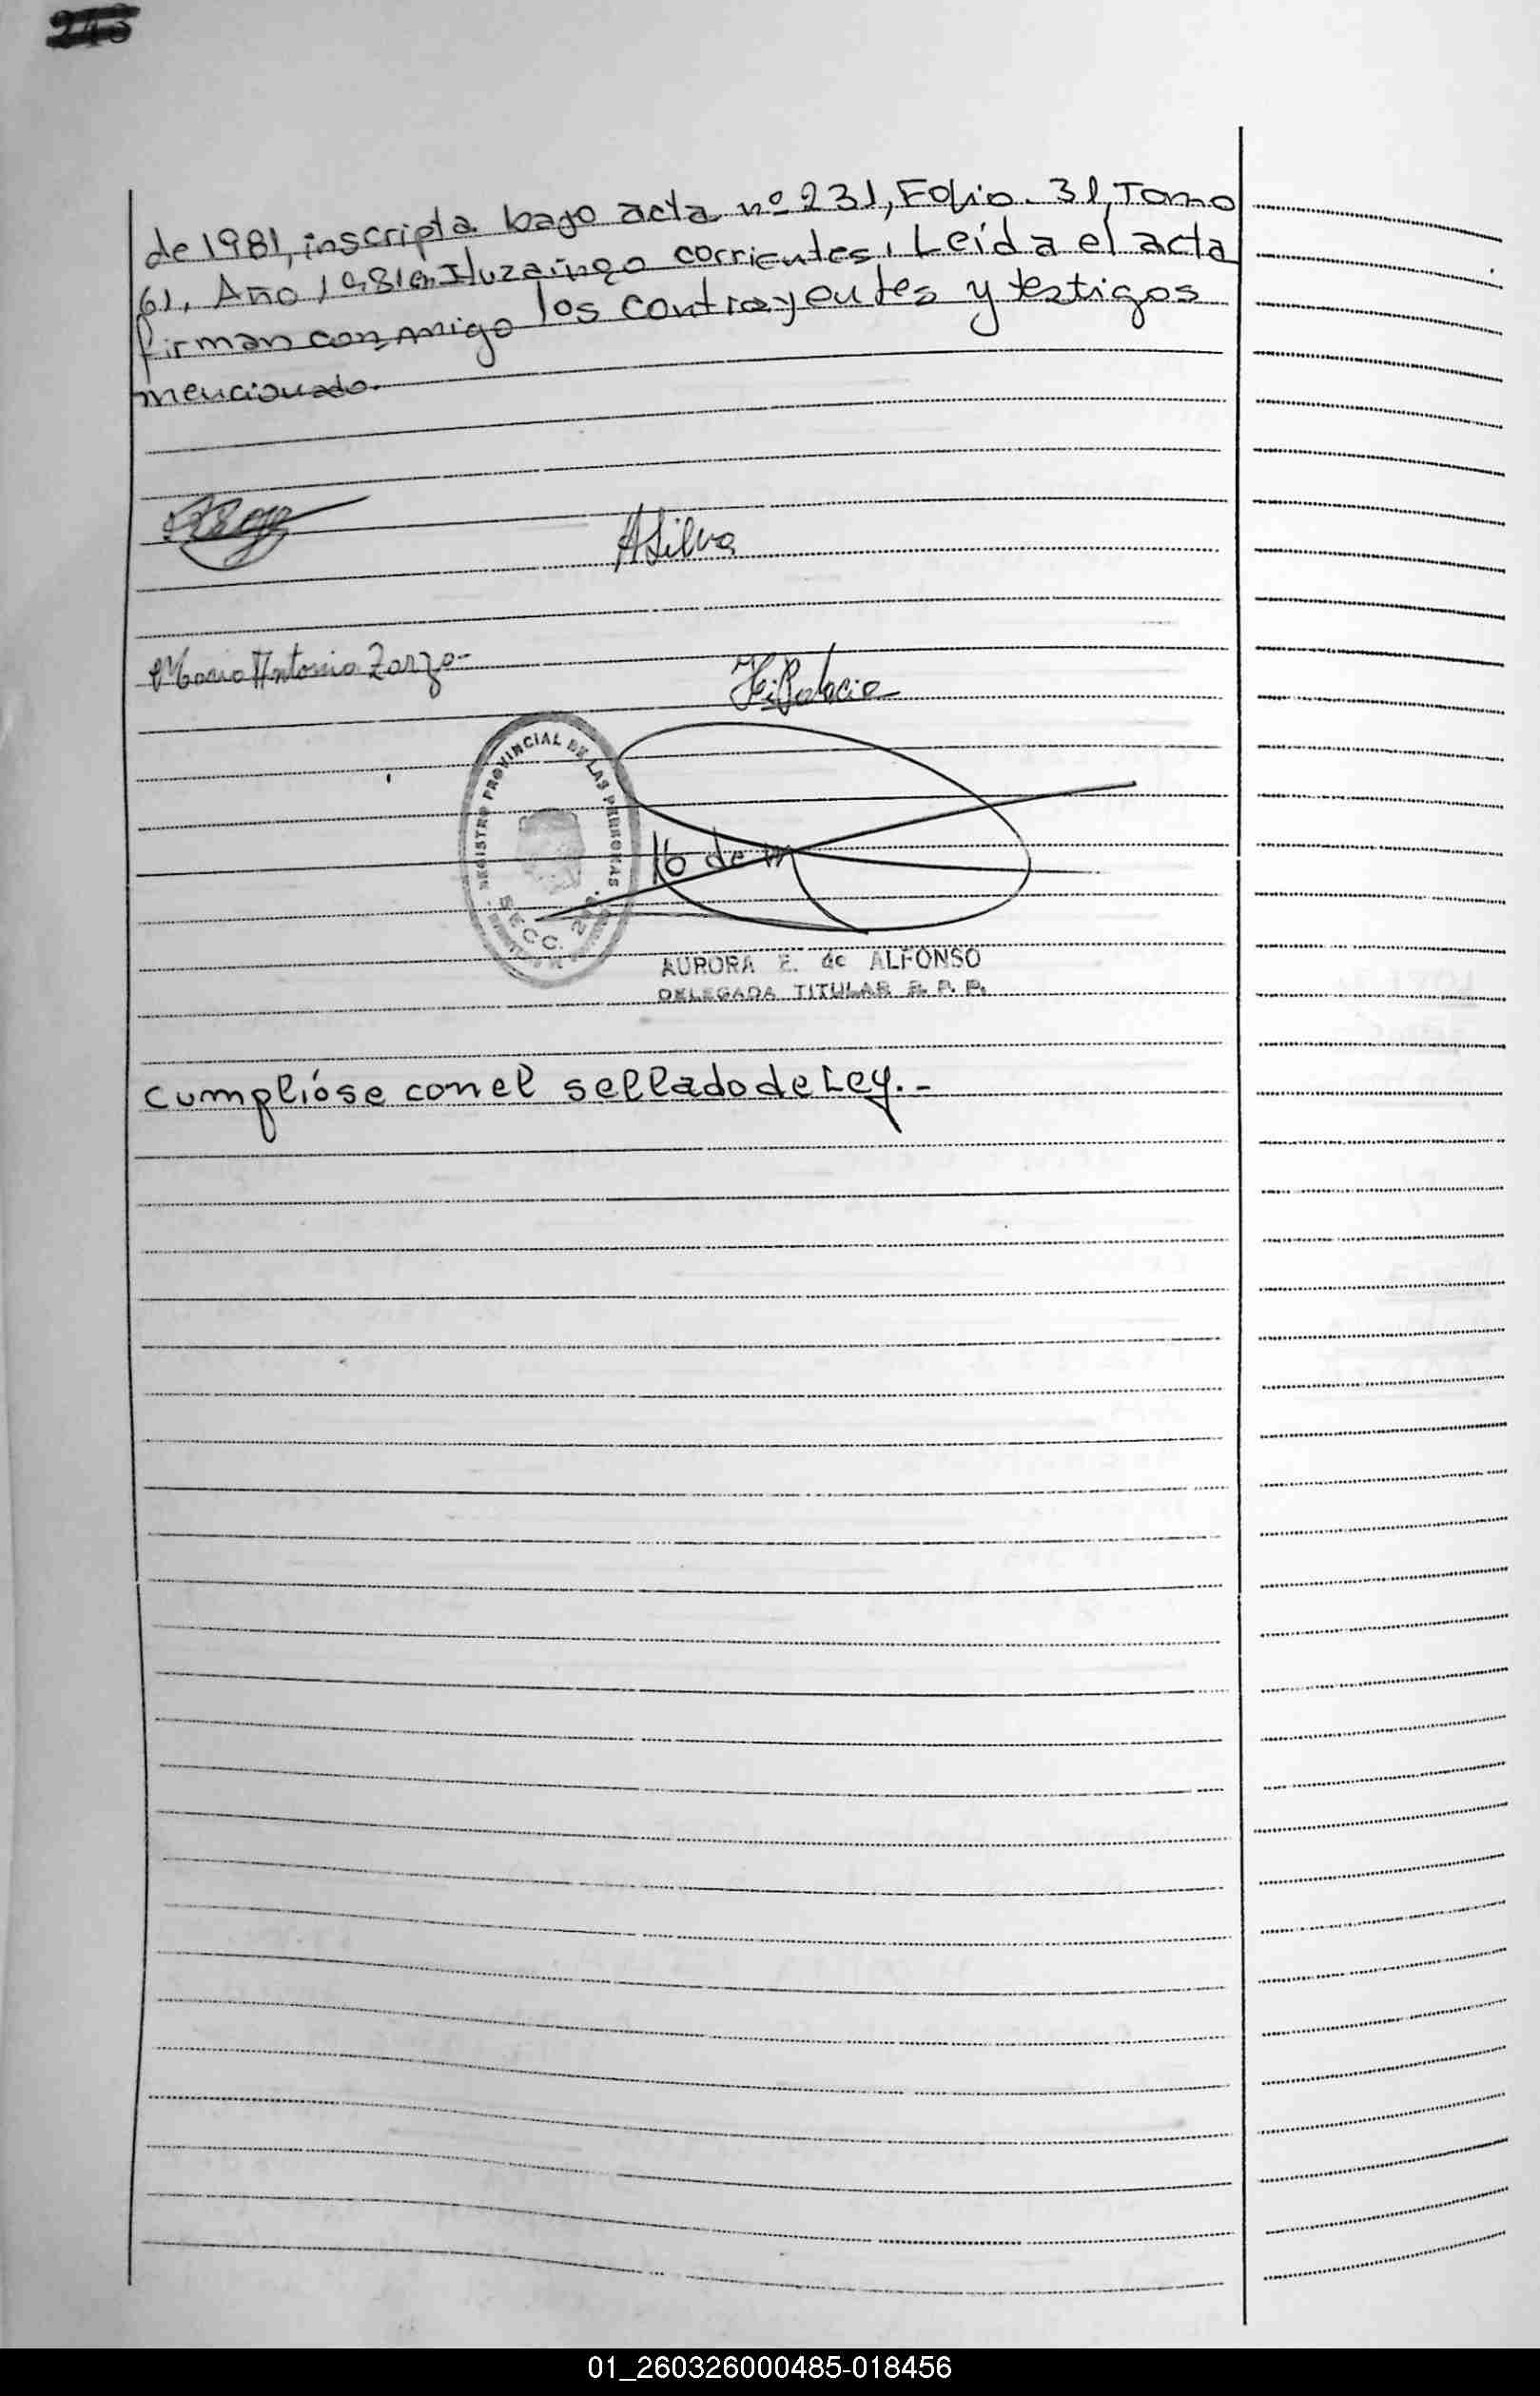 243
de 1981, inscripta bajo acta nº 231, Folio. 31, Tomo
61. Año 1981 en Ituzaingo corrientes. Leída el acta
firman con migo los contrayentes y testigos
mencionado.
ASilva
Maria Antonia Zarza-
REGISTRO PROVINCIAL DE LAS PERSONAS
SECC.
16 de
AURORA E. de ALFONSO
DELEGADA TITULAR R. P. P.
Cumplióse con el sellado de Ley.-
01_260326000485-018456